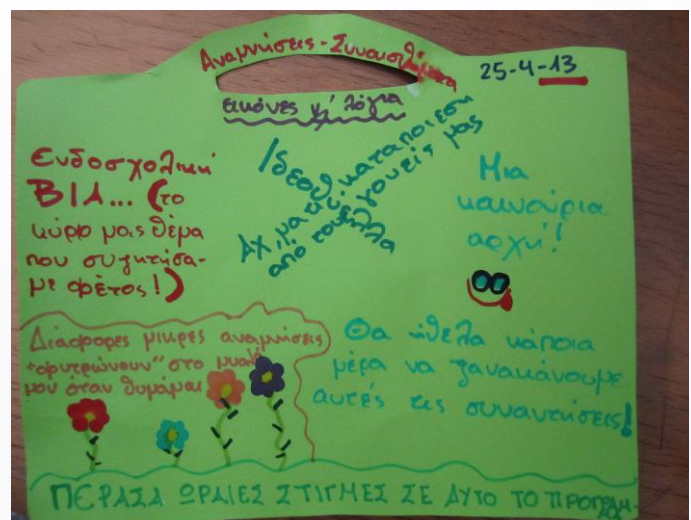 Αναμνήσεις - Συναισθήματα
25-4-13
εικόνες κ' λόγια
Ενδοσχολική
ΒΙΑ... (το
κύριο μας θέμα
που συζητήσα-
με φέτος!)
Ιδεοθύελλα
Αχ, μας την καταπιεση
από τους γονείς μας
Μια
καινούρια
αρχή!
Διάφορες μικρές αναμνήσεις
"φυτρώνουν" στο μυαλό
μου όταν θυμάμαι
Θα ήθελα κάποια
μέρα να ξανακάνουμε
αυτές τις συναντήσεις!
ΠΕΡΑΣΑ ΩΡΑΙΕΣ ΣΤΙΓΜΕΣ ΣΕ ΑΥΤΟ ΤΟ ΠΡΟΓΡΑΜ-